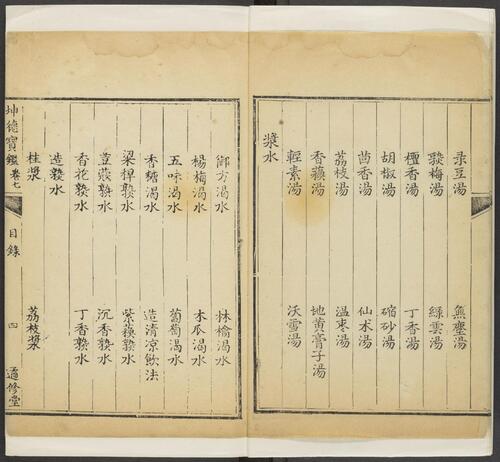 菉豆湯 無塵湯
熟梅湯 綠雲湯
檀香湯 丁香湯
胡椒湯 縮砂湯
茴香湯 仙术湯
荔枝湯 温棗湯
香蘓湯 地黃膏子湯
輕素湯 沃雪湯
漿水
御方渴水 林檎渴水
楊梅渴水 木瓜渴水
五味渴水 葡萄渴水
香糖渴水 造清凉飲法
梁稈熟水 紫蘓熟水
荳蔻熟水 沉香熟水
香花熟水 丁香熟水
造熟水
桂漿 荔枝漿
坤德寳鑑 卷七 目錄 四 適修堂